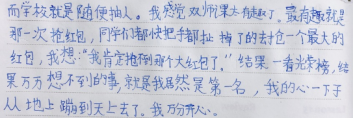 而学校就是随便抽人。我感觉双师课太有趣了。最有趣就是
那一次抢红包，同学们都快把手都扯掉了的去抢一个最大的
红包，我想："我肯定抢不到那个大红包了。"结果一看光荣榜，结
果万万想不到的事，就是我居然是第一名，我的心一下子
从地上蹦到天上去了。我万分开心。